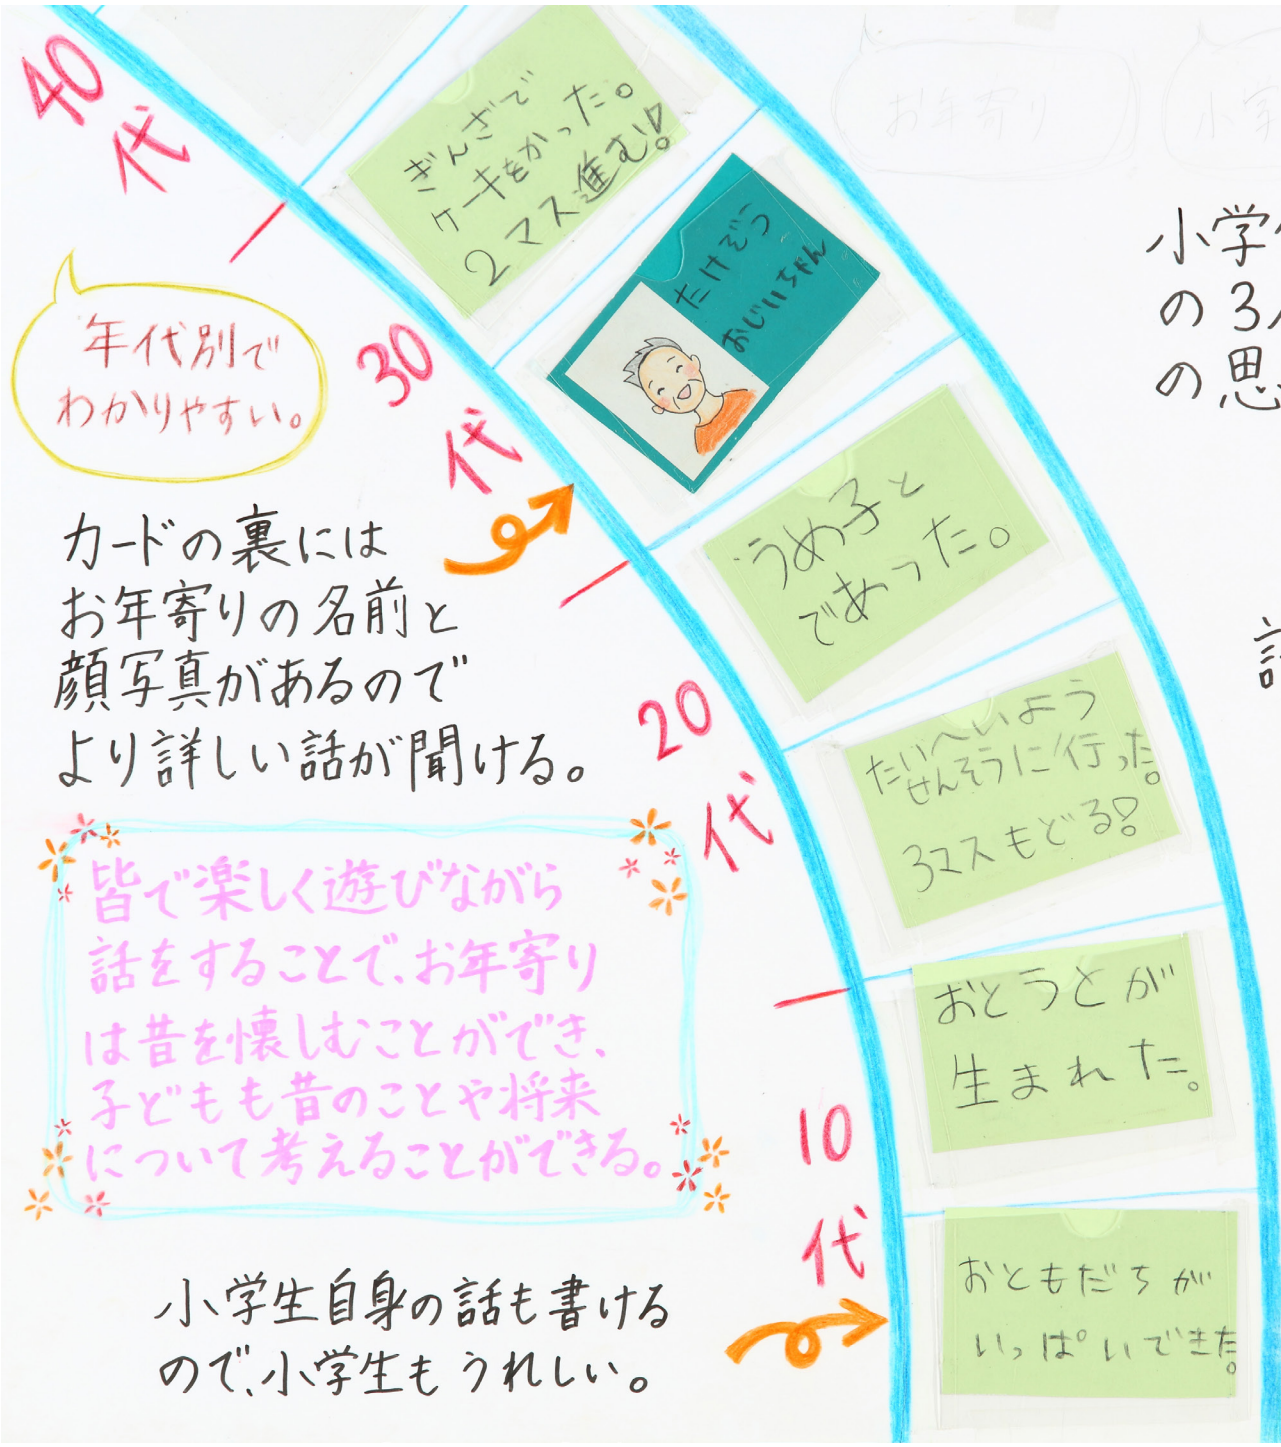 40
代
ぎんざで
ケーキをかった。
2マス進む!
たけぞう
おじいちゃん
年代別で
わかりやすい。
30
代
うめ子と
であった。
カードの裏には
お年寄りの名前と
顔写真があるので
より詳しい話が聞ける。
20
代
たいへいよう
せんそうに行った。
3マスもどる!
皆で楽しく遊びながら
話をすることで、お年寄り
は昔を懐しむことができ、
子どもも昔のことや将来
について考えることができる。
おとうとが
生まれた。
10
代
おともだちが
いっぱいできた。
小学生自身の話も書ける
ので、小学生もうれしい。
お年寄り
小学
の3
の思